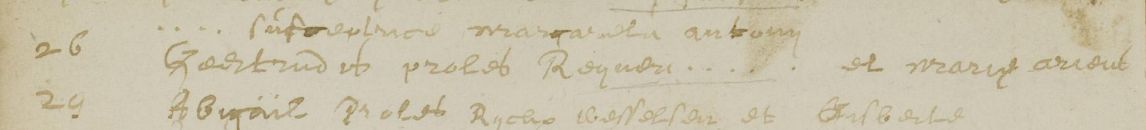 .... susceptrice margareta antonij
26 Geertrudis proles Reyneri ..... et mariæ arient
29 Abigail proles Rycho wesselsen et Gisberte